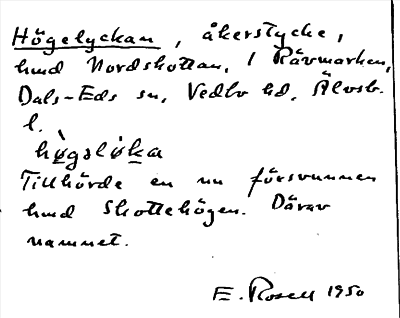 Högelyckan, åkerstycke,
hmd Nordskottan, 1 Rävmarken,
Dals-Eds sn, Vedbo hd, Älvsb.
l.
hø̀gsløka
Tillhörde en nu försvunnen
hmd Skottehögen. Därav
namnet.
E. Rosell 1950